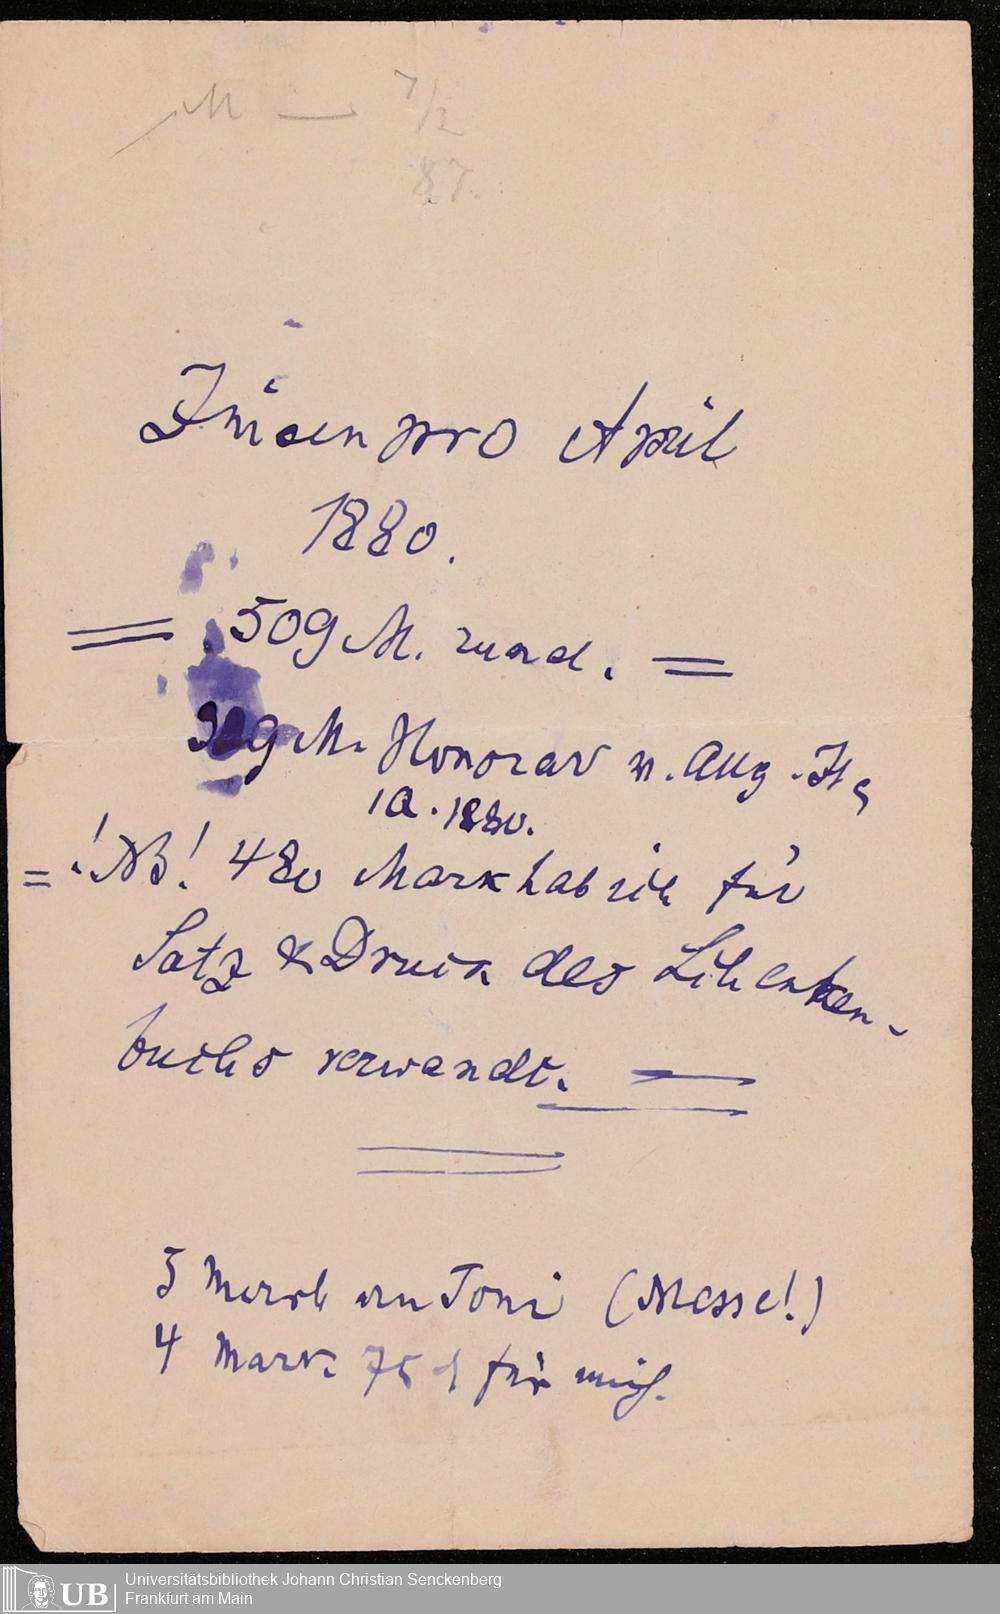 M — 7/2
87.
Zinsen pro April
1880.
= 509 M. rund. =
9 M. Honorar v. Allg. Ztg
1880.
= ! NB! 480 Mark hab ich für
Satz & Druck des
buchs verwandt. =
5 Mark an Toni (Messe!)
4 Mark 75 ₰ für mich.
UB Universitätsbibliothek Johann Christian Senckenberg
Frankfurt am Main